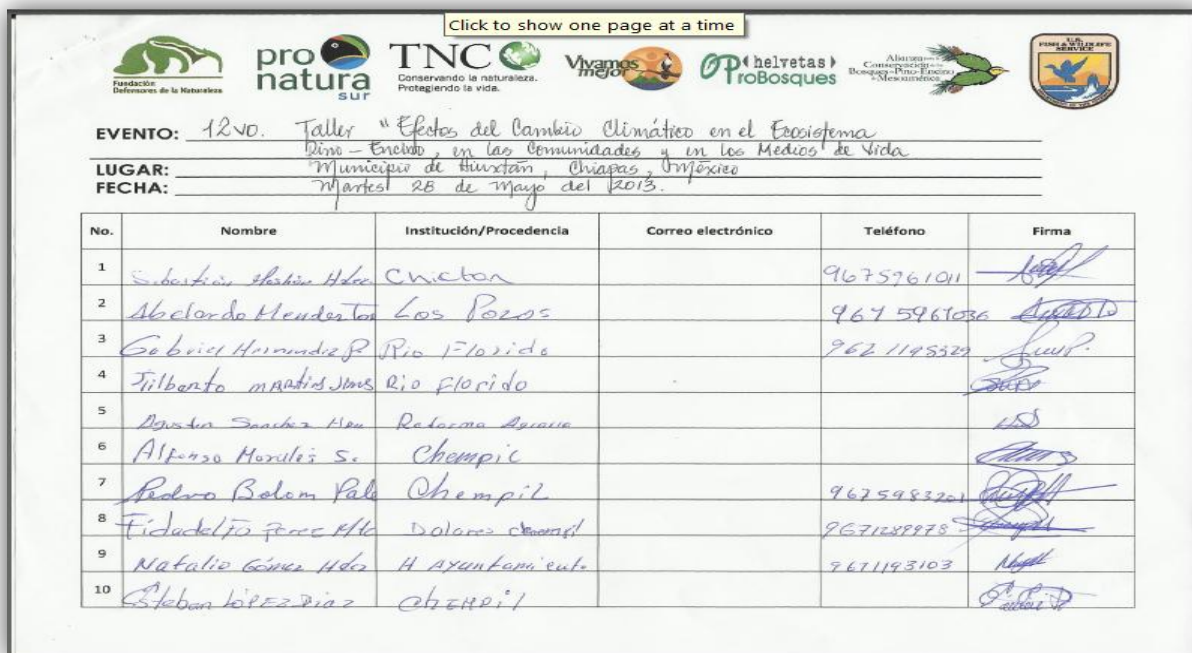 Click to show one page at a time
Fundación
Defensores de la Naturaleza
pro
natura
sur
TNC
Conservando la naturaleza.
Protegiendo la vida.
Vivamos
mejor
helvetas
ProBosques
Alianza para la
Conservación de los
Bosques de Pino-Encino
de Mesoamérica
U.S.
FISH & WILDLIFE
SERVICE
EVENTO: 12vo. Taller "Efectos del Cambio Climático en el Ecosistema
Pino-Encino, en las Comunidades y en los Medios de Vida
LUGAR: Municipio de Huixtán, Chiapas, México
FECHA: Martes 28 de Mayo del 2013.
No. Nombre Institución/Procedencia Correo electrónico Teléfono Firma
1 Sebastián Hdez Chictan 9675961011
2 Abelardo Mendez Los Pozos 967 5961036
3 Gabriel Hernandez P Rio Florido
4 Jilberto Martins Rio Florido
5 Agustin Sanchez Reforma Agraria
6 Alfonso Morales S. Chempic
7 Pedro Bolom Pale Chempil 9675983201
8 Fidadelfo Perez Dolores chempil 9671289978
9 Natalio Gómez Hdez H Ayuntamiento 9671193103
10 Esteban LÓPEZ DiAZ ChEMPil